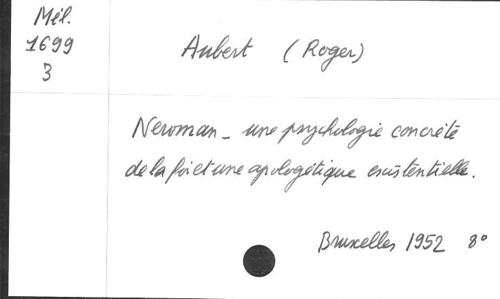 Mél.
1699
3
Aubert (Roger)
Newman - une psychologie concrète
de la foi et une apologétique existentielle.
Bruxelles 1952 8°